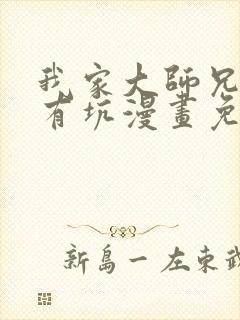 我家大師兄
有坑漫畫免
新島一 左東武